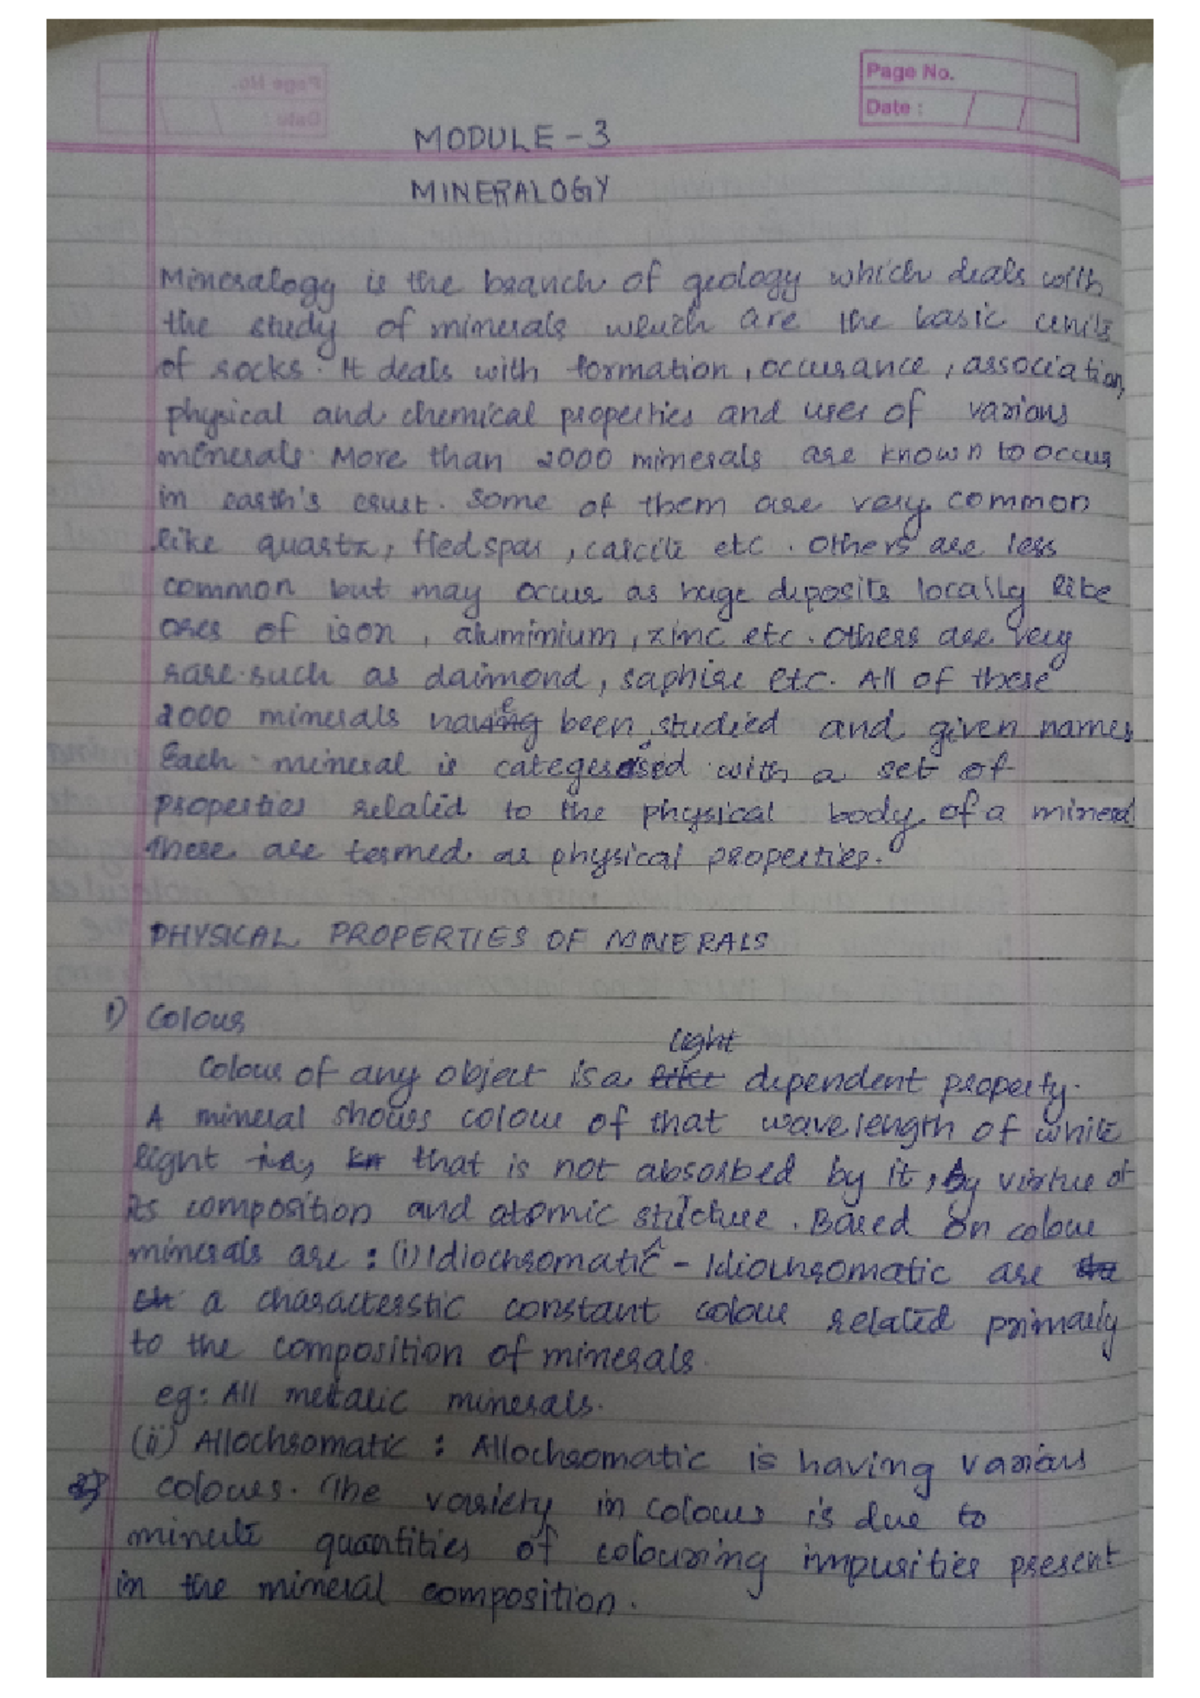 Page No.
Date :
MODULE - 3
MINERALOGY
Mineralogy is the branch of geology which deals with
the study of minerals which are the basic units
of rocks. It deals with formation, occurance, association,
physical and chemical properties and uses of various
minerals. More than 2000 minerals are known to occur
in earth's crust. Some of them are very common
like quartz, fledspar, calcite etc. Others are less
common but may occur as huge deposits locally like
ores of iron, aluminium, zinc etc. Others are very
rare such as daimond, saphire etc. All of these
2000 minerals have been studied and given names
Each mineral is categerosied with a set of
properties related to the physical body of a mineral
These are termed as physical properties.
PHYSICAL PROPERTIES OF MINERALS
1) Colour
Colour of any object is a light dependent property.
A mineral shows colour of that wavelength of white
light that is not absorbed by it, by virtue of
its composition and atomic structure. Based on colour
minerals are : (i) Idiochromatic - Idiochromatic are
a characterstic constant colour related primarily
to the composition of minerals.
eg: All metalic minerals.
(ii) Allochromatic : Allochromatic is having various
colours. The variety in colour is due to
minute quantities of colouring impurities present
in the mineral composition.